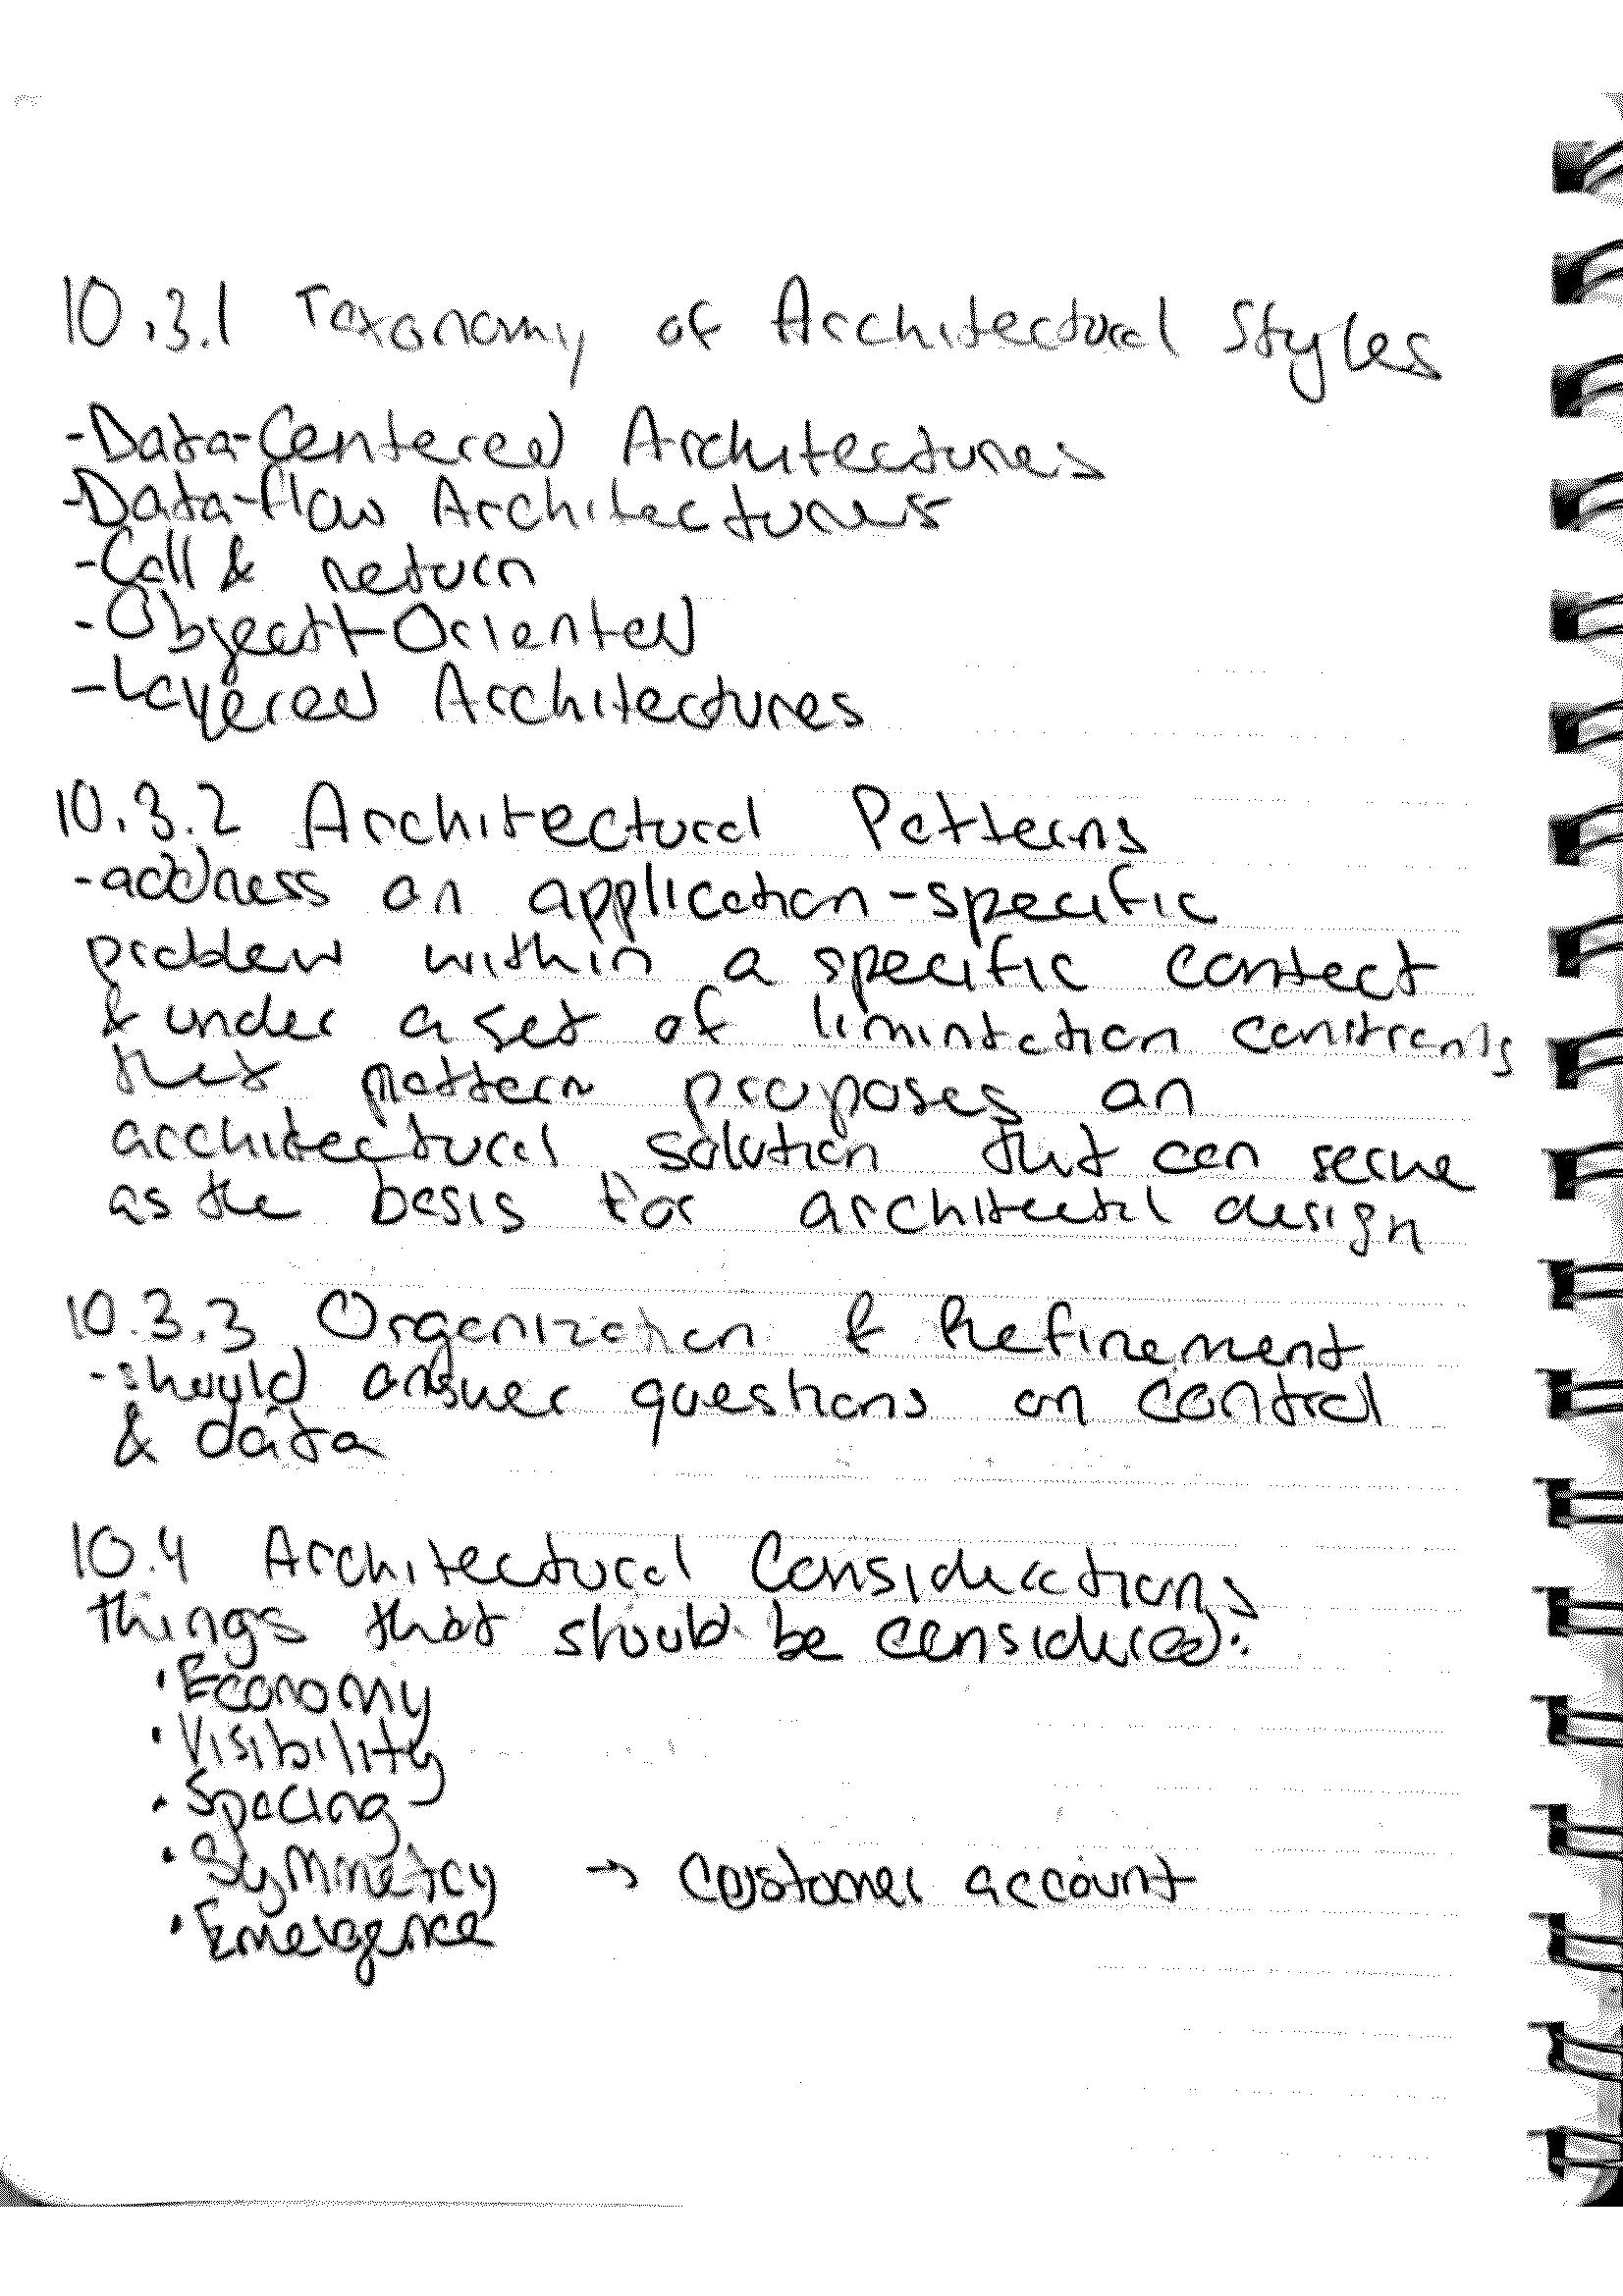 10.3.1 Taxonomy of Architectural Styles
-Data-Centered Architectures
-Data-flow Architectures
-Call & return
-Object-Oriented
-Layered Architectures
10.3.2 Architectural Patterns
-address an application-specific
problem within a specific context
& under a set of limitation constraints
that pattern proposes an
architectural solution that can serve
as the basis for architectural design
10.3.3 Organization & Refinement
-should answer questions on control
& data
10.4 Architectural Considerations
things that should be considered:
• Economy
• Visibility
• Spacing
• Symmetry → customer account
• Emergence